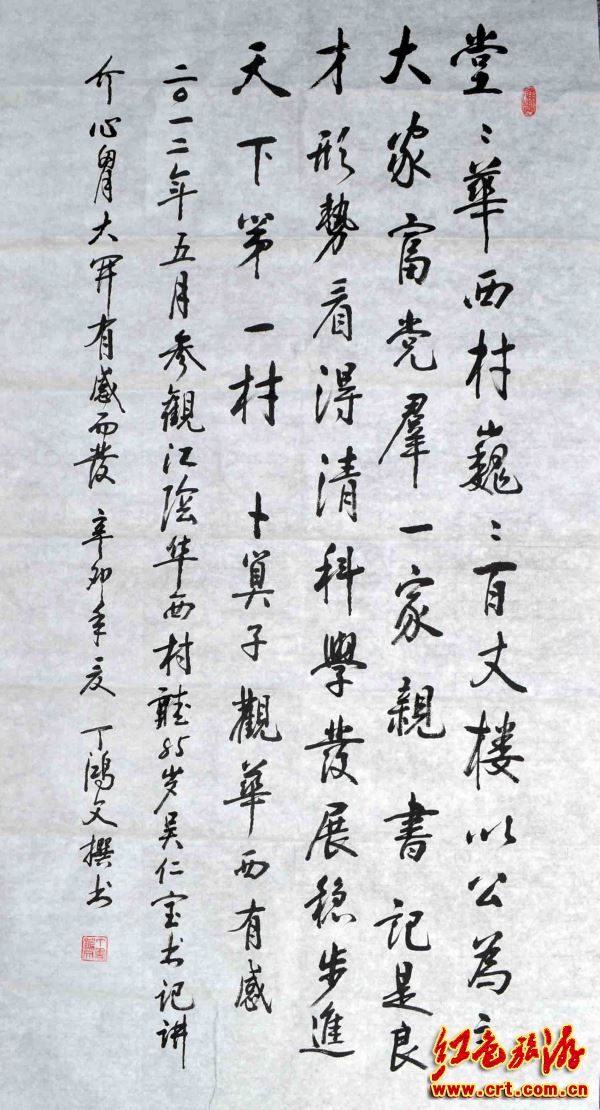 堂〻華西村巍〻百丈楼以公為
大家富党羣一家親 書記是良
才形勢看得清科學發展穏步進
天下第一村 卜算子觀華西有感
二〇一二年五月参觀江陰华西村聽85岁吴仁宝书记讲
介心大開有感而發 辛卯年夏 丁鴻文撰书
红色旅游
www.crt.com.cn